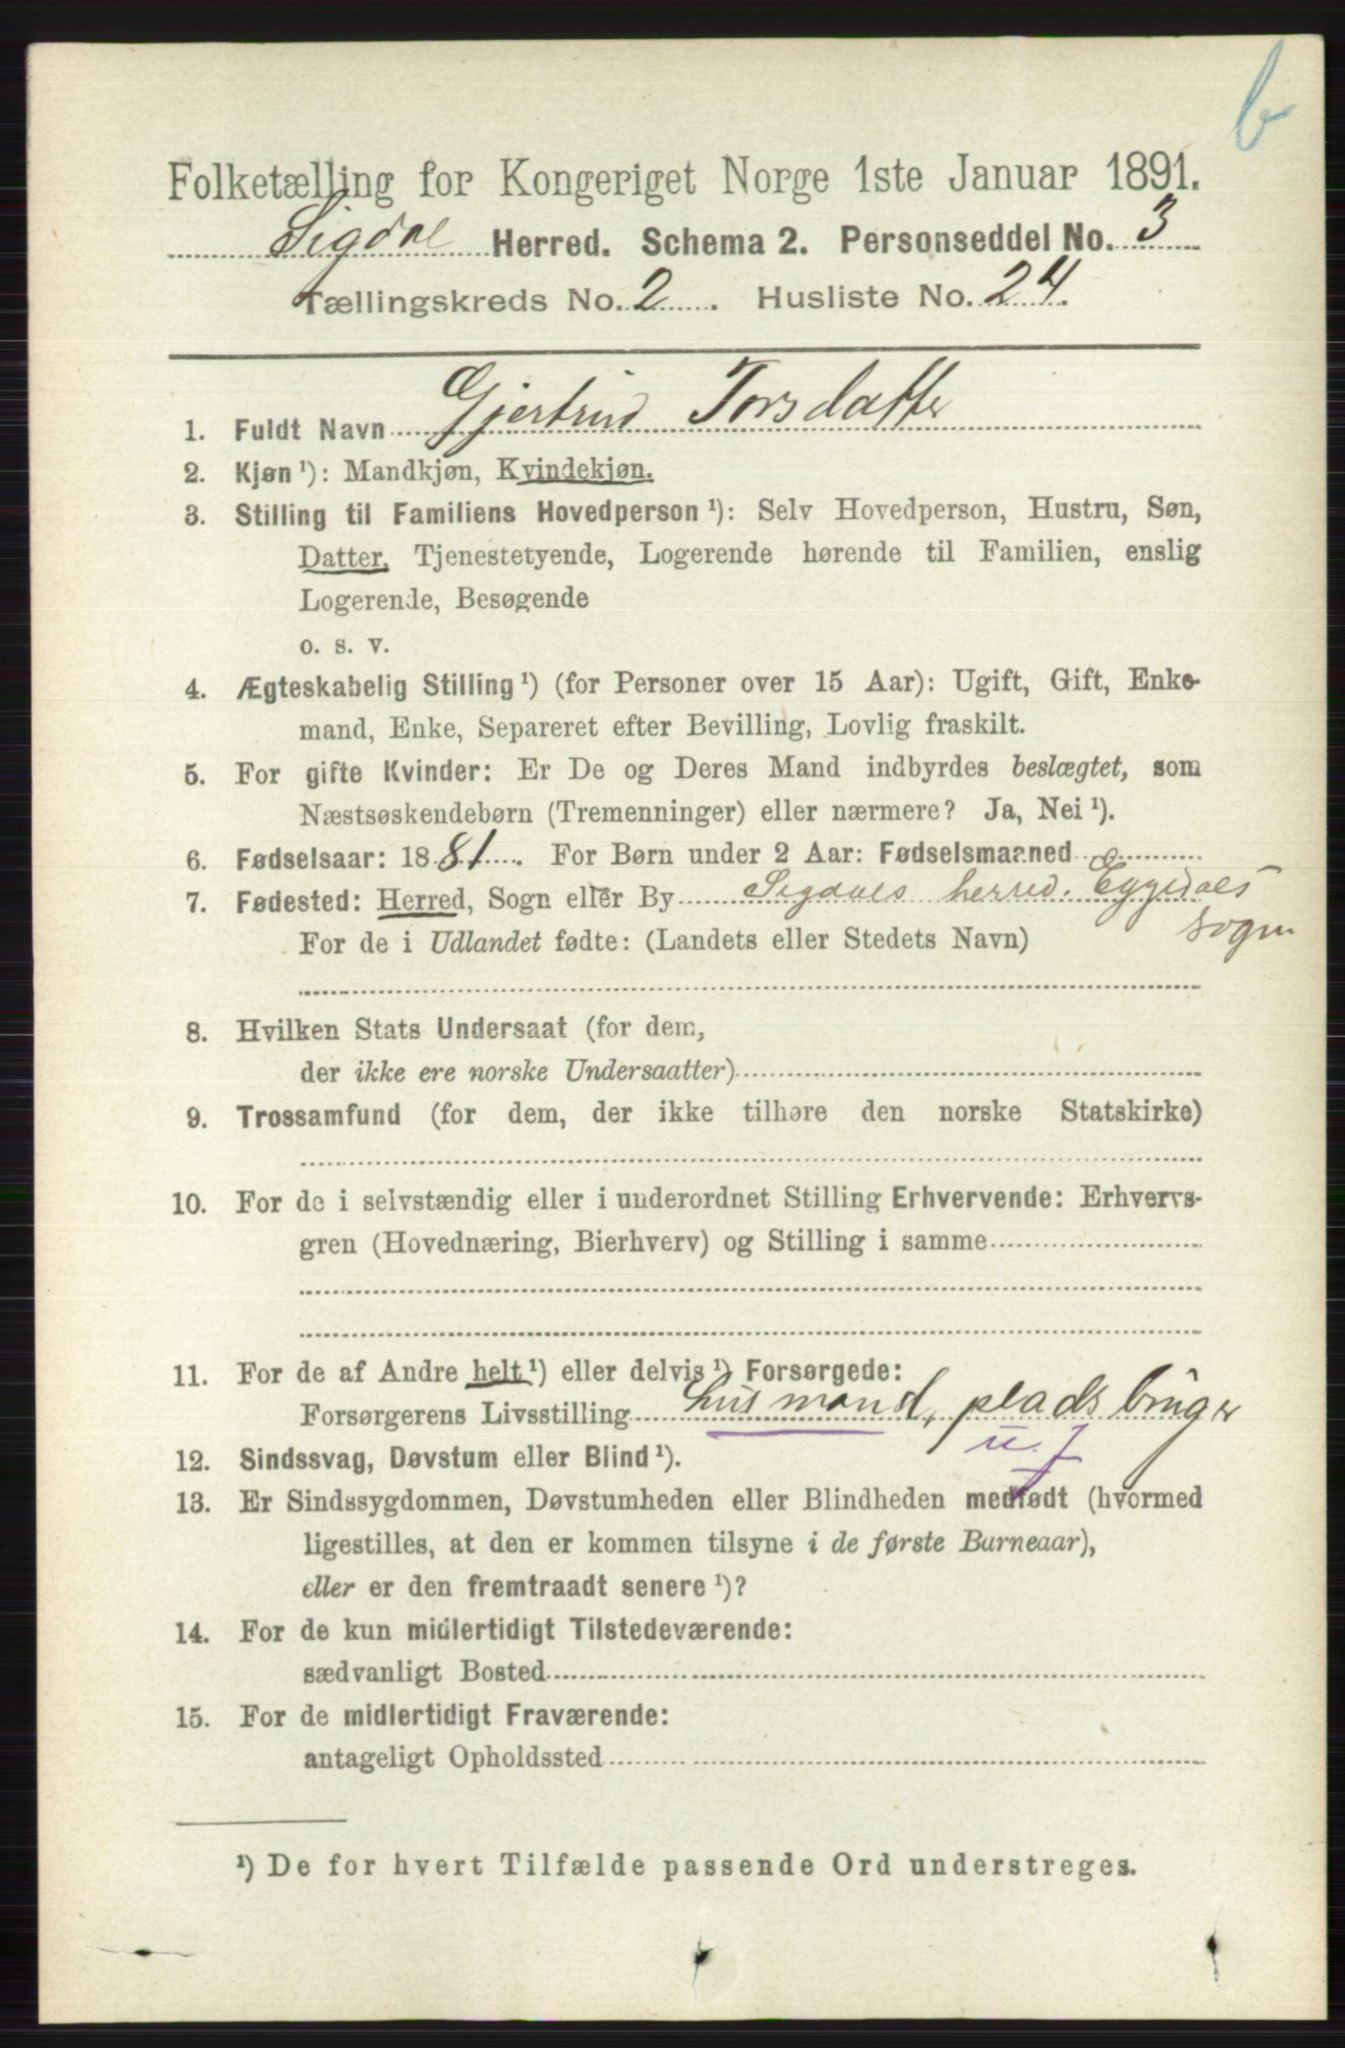 b
Folketælling for Kongeriget Norge 1ste Januar 1891.
Sigdal Herred. Schema 2. Personseddel No. 3
Tællingskreds No. 2. Husliste No. 24.
1. Fuldt Navn Gjertrud Torsdatter
2. Kjøn¹): Mandkjøn, Kvindekjøn.
3. Stilling til Familiens Hovedperson¹): Selv Hovedperson, Hustru, Søn,
Datter, Tjenestetyende, Logerende hørende til Familien, enslig
Logerende, Besøgende
o. s. v.
4. Ægteskabelig Stilling¹) (for Personer over 15 Aar): Ugift, Gift, Enke-
mand, Enke, Separeret efter Bevilling, Lovlig fraskilt.
5. For gifte Kvinder: Er De og Deres Mand indbyrdes beslægtet, som
Næstsøskendebørn (Tremenninger) eller nærmere? Ja, Nei¹).
6. Fødselsaar: 1881. For Børn under 2 Aar: Fødselsmaaned
7. Fødested: Herred, Sogn eller By Sigdals herred. Eggedals
sogn
For de i Udlandet fødte: (Landets eller Stedets Navn)
8. Hvilken Stats Undersaat (for dem,
der ikke ere norske Undersaatter)
9. Trossamfund (for dem, der ikke tilhøre den norske Statskirke)
10. For de i selvstændig eller i underordnet Stilling Erhvervende: Erhvervs-
gren (Hovednæring, Bierhverv) og Stilling i samme
11. For de af Andre helt¹) eller delvis¹) Forsørgede:
Forsørgerens Livsstilling husmand, pladsbruger
u. J
12. Sindssvag, Døvstum eller Blind¹).
13. Er Sindssygdommen, Døvstumheden eller Blindheden medfødt (hvormed
ligestilles, at den er kommen tilsyne i de første Barneaar),
eller er den fremtraadt senere¹)?
14. For de kun midlertidigt Tilstedeværende:
sædvanligt Bosted
15. For de midlertidigt Fraværende:
antageligt Opholdssted
¹) De for hvert Tilfælde passende Ord understreges.